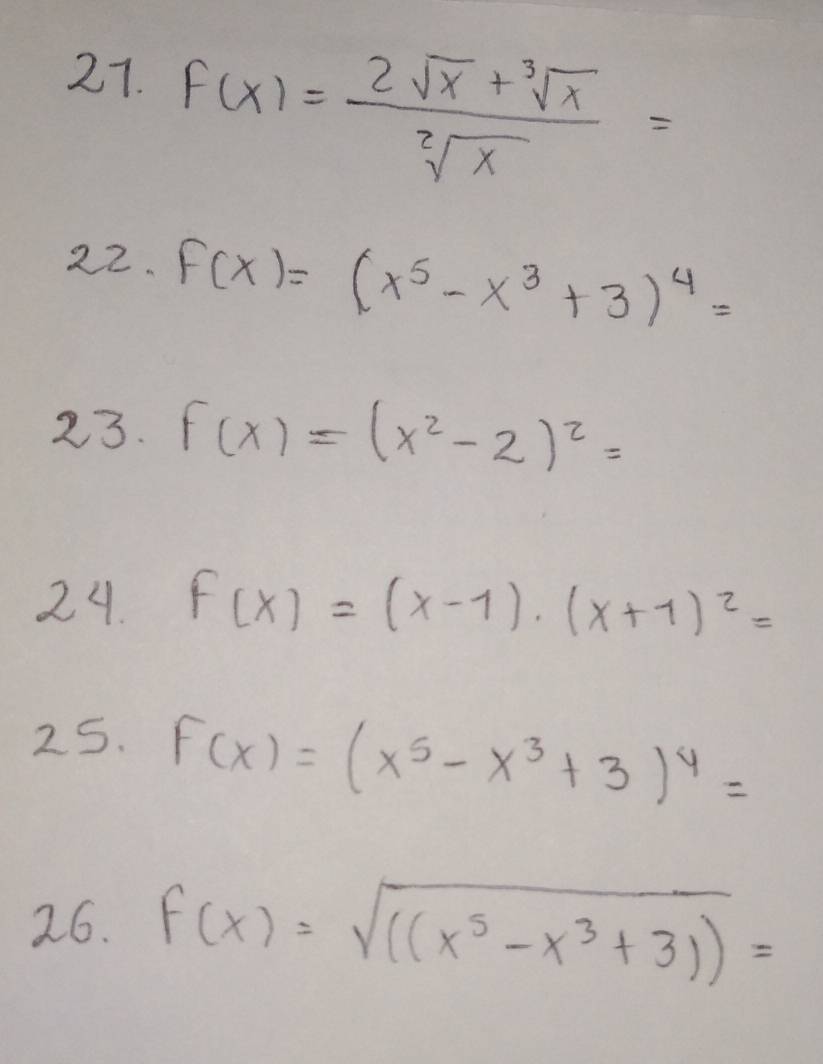 21. F(x) = \frac{2\sqrt{x} + \sqrt[3]{x}}{\sqrt[2]{x}} =
22. F(x) = (x^5 - x^3 + 3)^4 =
23. F(x) = (x^2 - 2)^2 =
24. F(x) = (x-1) . (x+1)^2 =
25. F(x) = (x^5 - x^3 + 3)^4 =
26. F(x) = \sqrt{((x^5 - x^3 + 3))} =